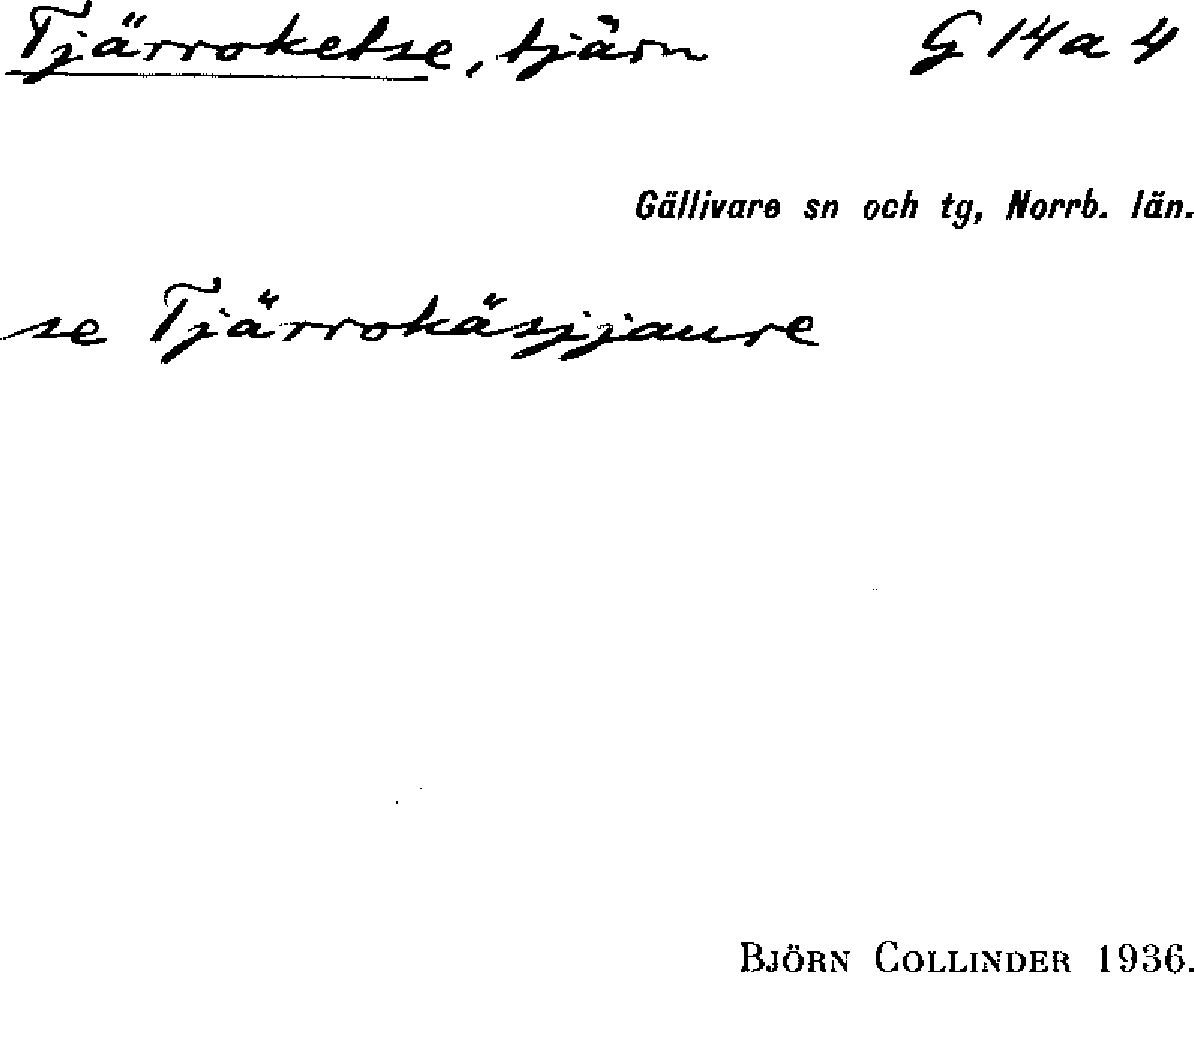 Tjärroketse, tjärn G 14a 4
Gällivare sn och tg, Norrb. län.
se Tjärrokäsjjaure
BJÖRN COLLINDER 1936.